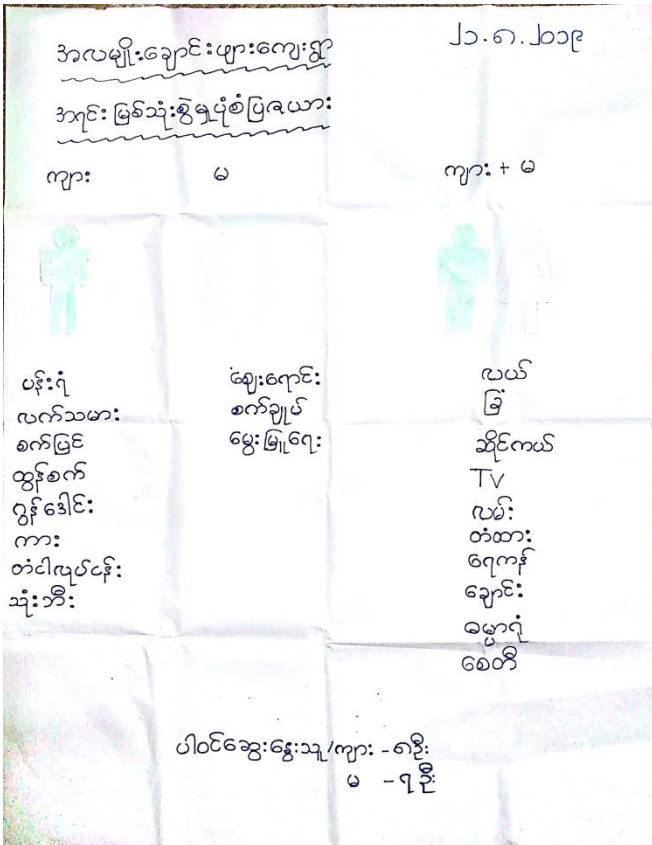 ၂၁.၈.၂၀၁၉
အလမျိုးချောင်းဖျားကျေးရွာ
အရင်းမြစ်သုံးစွဲမှုပုံစံပြဇယား
ကျား မ ကျား + မ
ပန်းရံ
လက်သမား
စက်ပြင်
ထွန်စက်
ဂွန်ဒေါင်း
ကား
တံငါလုပ်ငန်း
သုံးဘီး
ဈေးရောင်း
စက်ချုပ်
မွေးမြူရေး
လယ်
ခြံ
ဆိုင်ကယ်
TV
လမ်း
တံထား
ရေကန်
ချောင်း
ဓမ္မာရုံ
စေတီ
ပါဝင်ဆွေးနွေးသူ/ကျား - ၈ဦး
မ - ၇ဦး